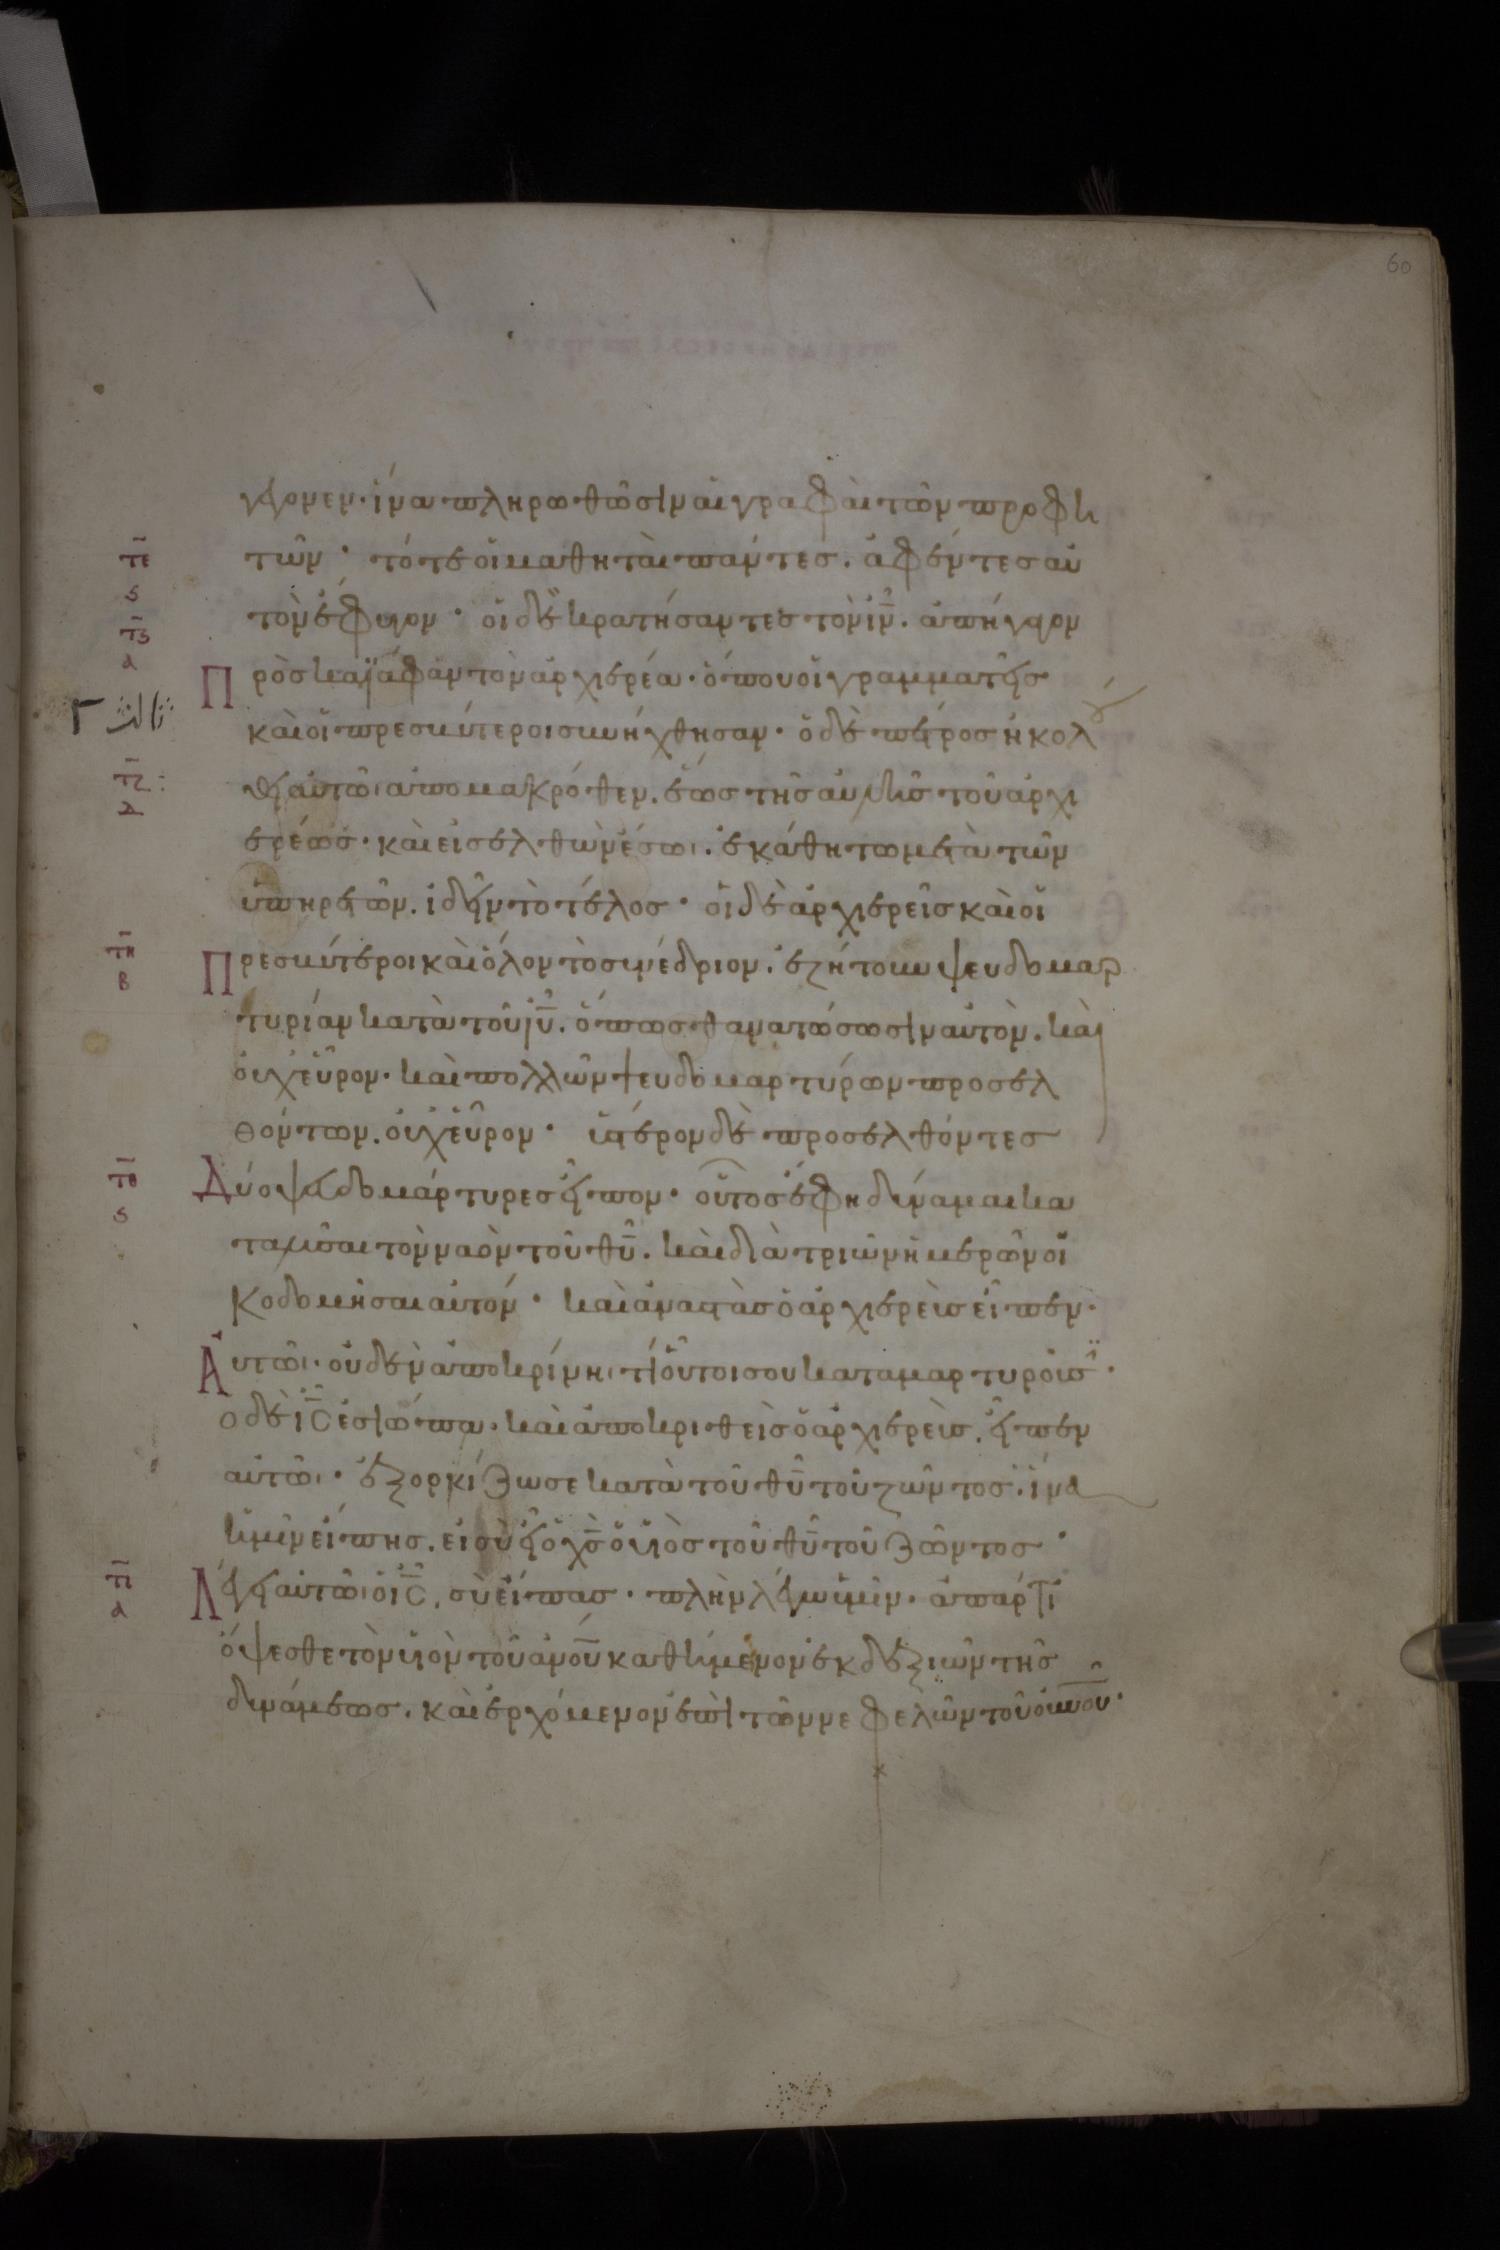 60
γέγονεν· ἵνα πληρωθῶσιν αἱ γραφαὶ τῶν προφη
τῶν· τότε οἱ μαθηταὶ πάντες. ἀφέντες αὐ
τὸν ἔφυγον· οἱ δὲ κρατήσαντες τὸν ιν̅. ἀπήγαγον
Πρὸς καϊάφαν τὸν ἀρχιερέα· ὅπου οἱ γραμματεῖς
καὶ οἱ πρεσβύτεροι συνήχθησαν· ὁ δὲ πέτρος ἠκολού
θει αὐτῶι ἀπομακρόθεν. ἕως τῆς αὐλῆς τοῦ ἀρχι
ερέως· καὶ εἰσελθὼν ἔσωι. ἐκάθητο μετὰ τῶν
ὑπηρετῶν. ἰδεῖν τὸ τέλος· οἱ δὲ ἀρχιερεῖς καὶ οἱ
Πρεσβύτεροι καὶ ὅλον τὸ συνέδριον. ἐζήτουν ψευδομαρ
τυρίαν κατὰ τοῦ ιυ̅. ὅπως θανατώσωσιν αὐτὸν. καὶ
οὐχ εὗρον· καὶ πολλῶν ψευδομαρτύρων προσελ
θόντων. οὐχ εὗρον· ὕστερον δὲ προσελθόντες
Δύο ψευδομάρτυρες εἶπον· οὗτος ἔφη δύναμαι κα
ταλῦσαι τὸν ναὸν τοῦ θυ̅. καὶ διὰ τριῶν ἡμερῶν οἰ
κοδομῆσαι αὐτόν· καὶ ἀναστὰς ὁ ἀρχιερεὺς εἶπεν·
Αὐτῶι· οὐδὲν ἀποκρίνηι τί οὗτοί σου καταμαρτυροῦσιν·
ὁ δὲ ις̅ ἐσιώπα· καὶ ἀποκριθεὶς ὁ ἀρχιερεὺς. εἶπεν
αὐτῶι· ἐξορκίζω σε κατὰ τοῦ θυ̅ τοῦ ζῶντος. ἵνα
ἡμῖν εἴπης. εἰ σὺ εἶ ὁ χς̅ ὁ υἱὸς τοῦ θυ̅ τοῦ ζῶντος·
Λέγει αὐτῶι ὁ ις̅. σὺ εἶπας· πλὴν λέγω ὑμῖν. ἀπάρτι
ὄψεσθε τὸν υἱὸν τοῦ ανου̅ καθήμενον ἐκ δεξιῶν τῆς
δυνάμεως. καὶ ἐρχόμενον ἐπὶ τῶν νεφελῶν τοῦ ουνου̅·
τε
ϛ
τϛ
α
ثالث ٣
τζ
δ
τη
β
τθ
ϛ
τι
α